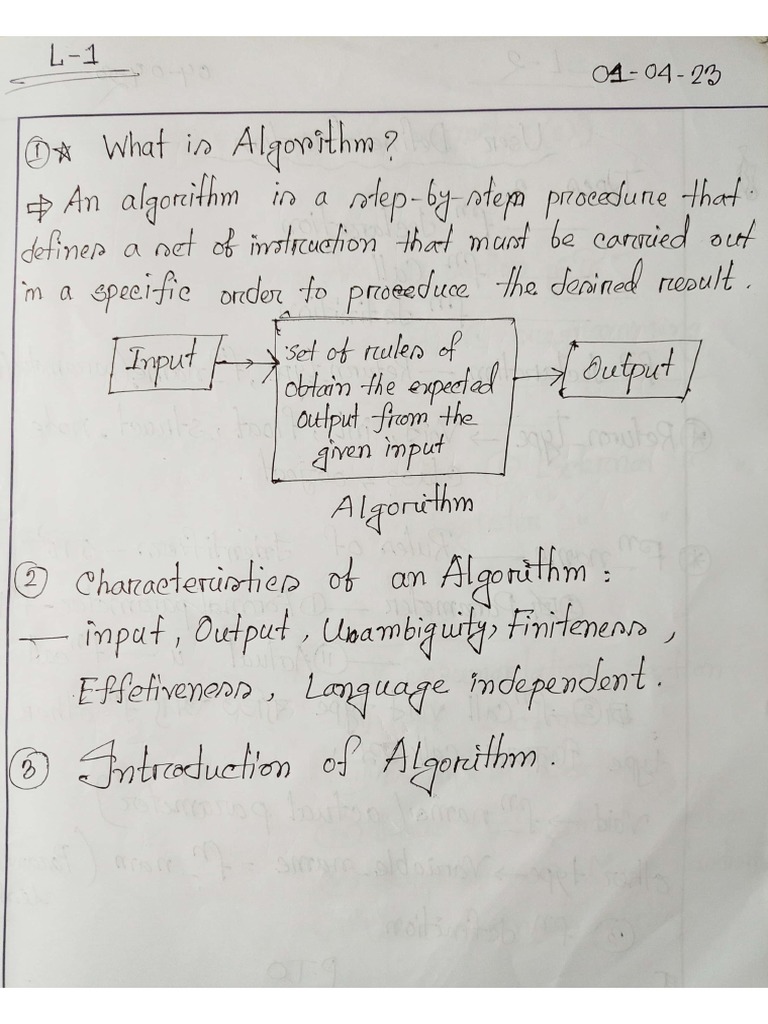 L-1
04-04-23
① ☆ What is Algorithm?
⇒ An algorithm is a step-by-step procedure that
defines a set of instruction that must be carried out
in a specific order to proeeduce the desired result.
Input
Set of rules of
obtain the expected
output from the
given input
Output
Algorithm
② Characteristics of an Algorithm :
— input, Output, Unambiguity, Finiteness,
Effetiveness, Language independent.
③ Introduction of Algorithm.